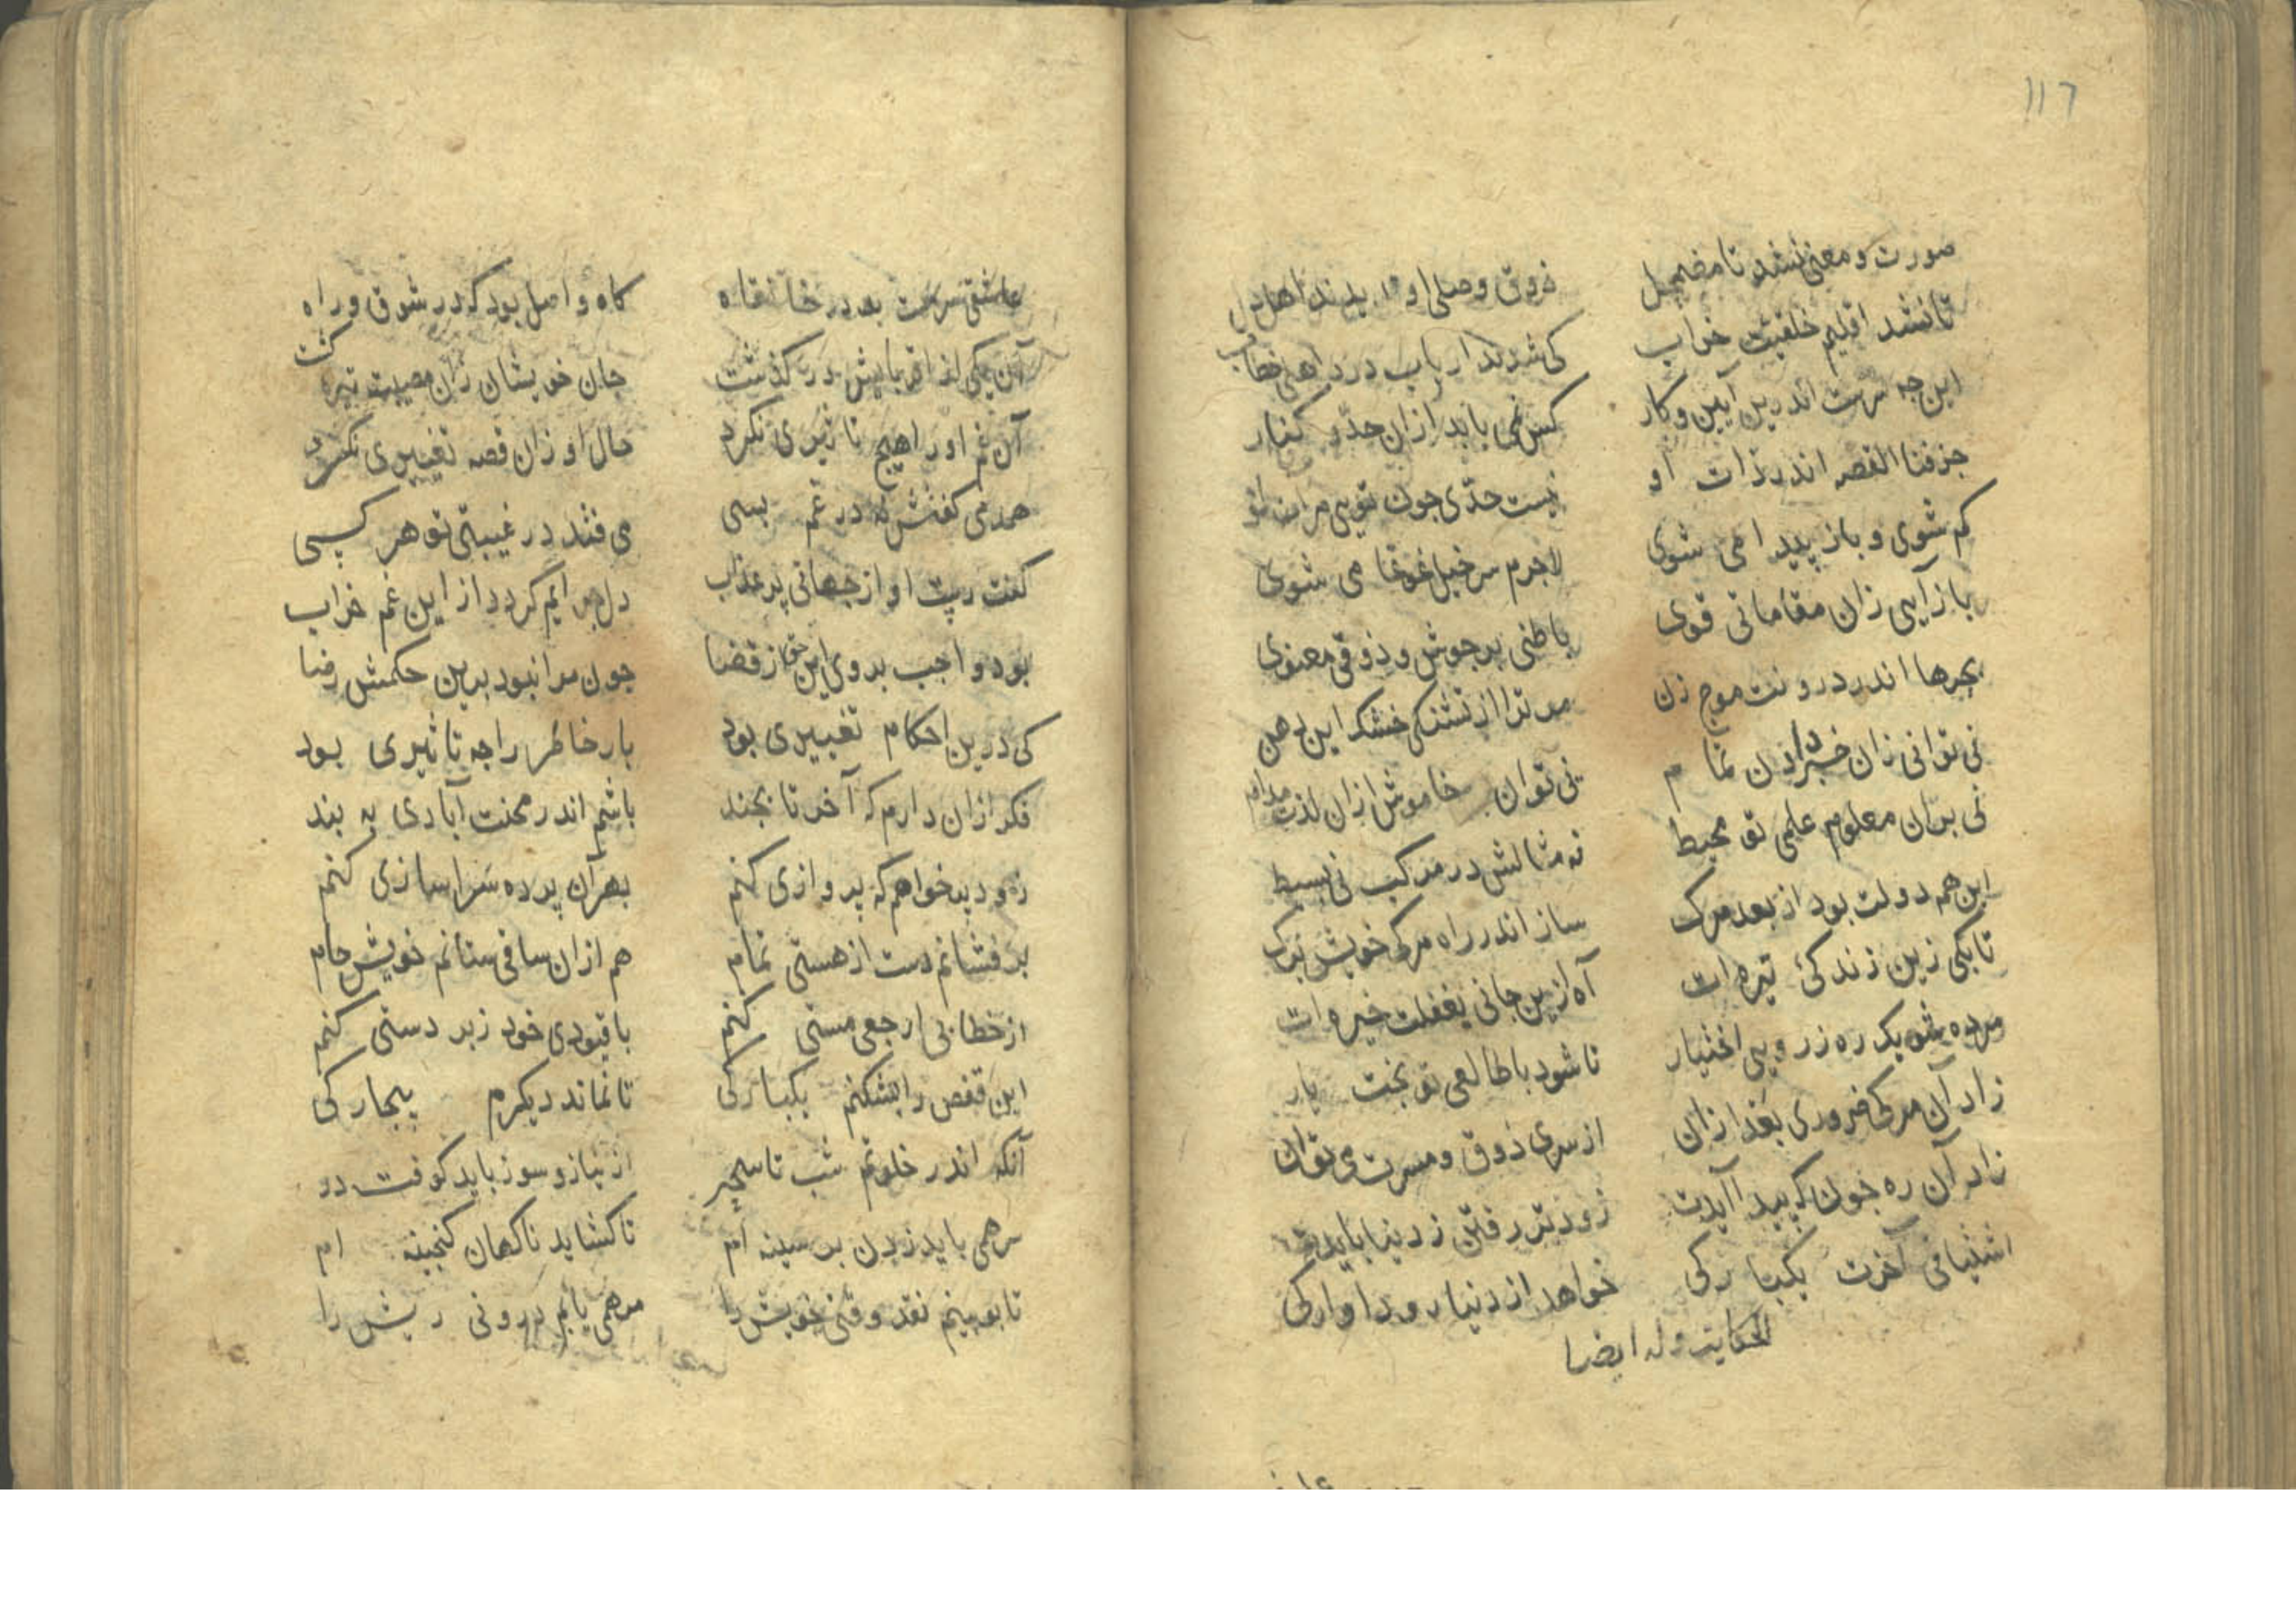 ۱۱۶
صورت و معنی نشد تا مضمحل ذوق وصلی او بدند اهل دل
تا نشد اقلیم خلقیت خراب کی شدند ارباب درد اهل خطاب
این چه سرست اندرین آیین و کار کس نمی یابد ازان حد و کنار
جز فنا القصه اندر ذات او نیست حدی چون تویی مرات او
کم شوی و باز پیدا می شوی لاجرم سرخیل غوغا می شوی
باز آیی زان مقاماتی قوی باطنی پر جوش و ذوقی معنوی
بحرها اندر درونت موج زن مر ترا از تشنکی خشک این دهن
نی توانی زان خبر دادن تمام نی توان خاموش ازان لذت مدام
نی بران معلوم علمی تو محیط نه مثالش در مرکب نی بسیط
این هم دولت بود از بعد مرک ساز اندر راه مرک خویش برک
تا بکی زین زندکئ تیره ات آه ازین جانی بغفلت خیره ات
مرده شو یک ره ز روی اختیار تا شود با طالعی تو بخت یار
زاد آن مرک ضروری بعد ازان از سری ذوق و مسرت می توان
زاد آن ره چون که پیدا آیدت زودتر رفتن ز دنیا بایدت
اشتیاقی آخرت یکبارکی خواهد از دنیا رود آوارکی
الحکایت وله ایضا
عاشقی سرمست بد در خانقاه کاه واصل بود که در شوق و راه
آن یکی از اقربایش در کذشت جان خویشان زان مصیبت تیره کشت
آن غم او را هیچ تاثیری نکرد حال او زان قصه تغییری نکرد
همدمی کفتش که در غم بسی می فتد در غیبتی تو هر کسی
کفت رپت او از جهانی پر عذاب دل چرایم کردد از این غم خراب
بود واجب بر وی این حق از قضا چون مرا نبود برین حکمش رضا
کی درین احکام تغییری بود بار خاطر را چه تاثیری بود
فکر ازان دارم که آخر تا بچند باشم اندر محنت آبادی به بند
زود پر خواهم که پروازی کنم بهر آن پرده سراسازی کنم
بر فشانم دست از هستی تمام هم ازان ساقی ستانم خویش جام
از خطابی ارجعی مستی کنم با قیودی خود زبر دستی کنم
این قفص را بشکنم یکبارکی تا نماند دیکرم بیچارکی
آنکه اندر خلوتم شب تا سحر از نیاز و سوز باید کوفت در
مرهمی باید زدن بر سینه ام تا کشاید ناکهان کنجینه ام
تا بو بینم نقد وقتی خویش را مرهمی یابم درونی ریش را